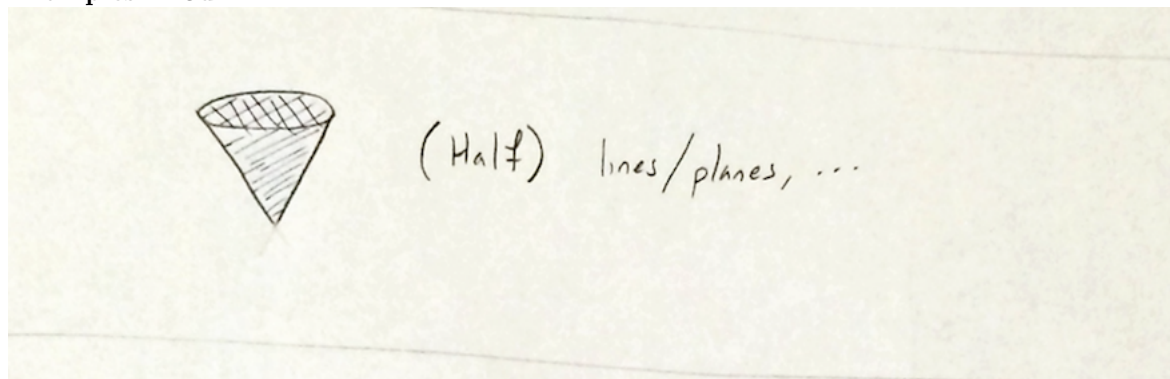 (Half) lines/planes, ...